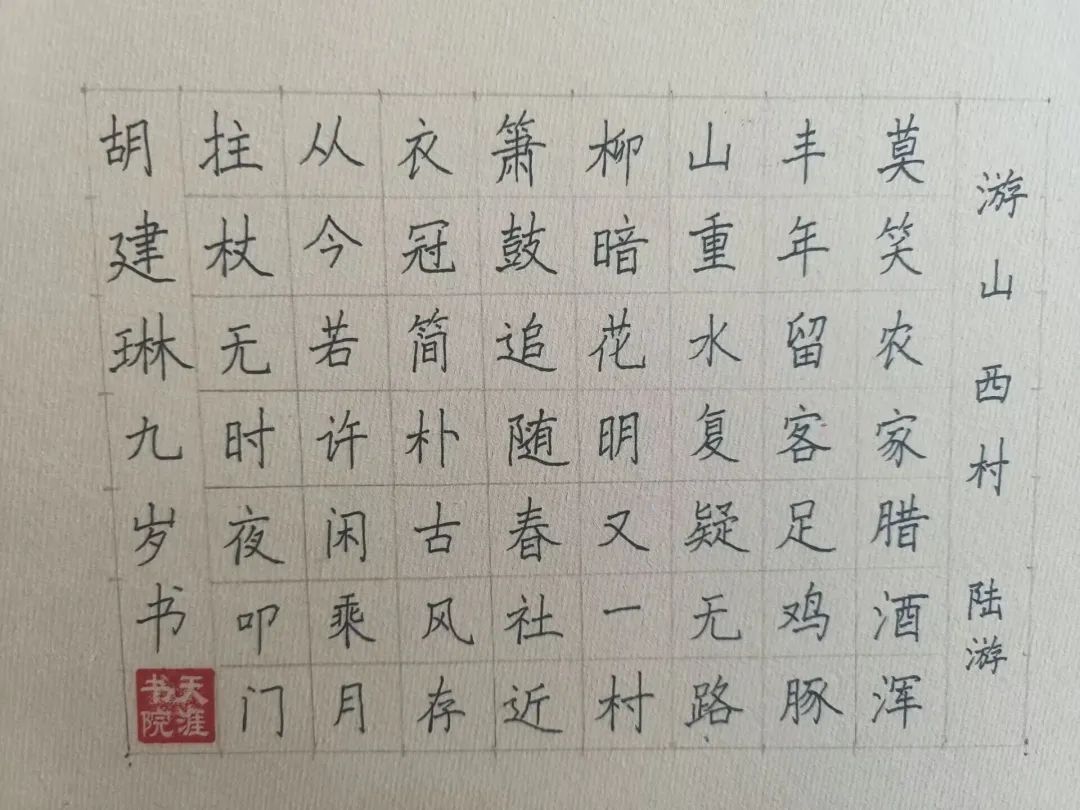 游山西村 陆游
莫笑农家腊酒浑
丰年留客足鸡豚
山重水复疑无路
柳暗花明又一村
箫鼓追随春社近
衣冠简朴古风存
从今若许闲乘月
拄杖无时夜叩门
胡建琳九岁书
天涯书院